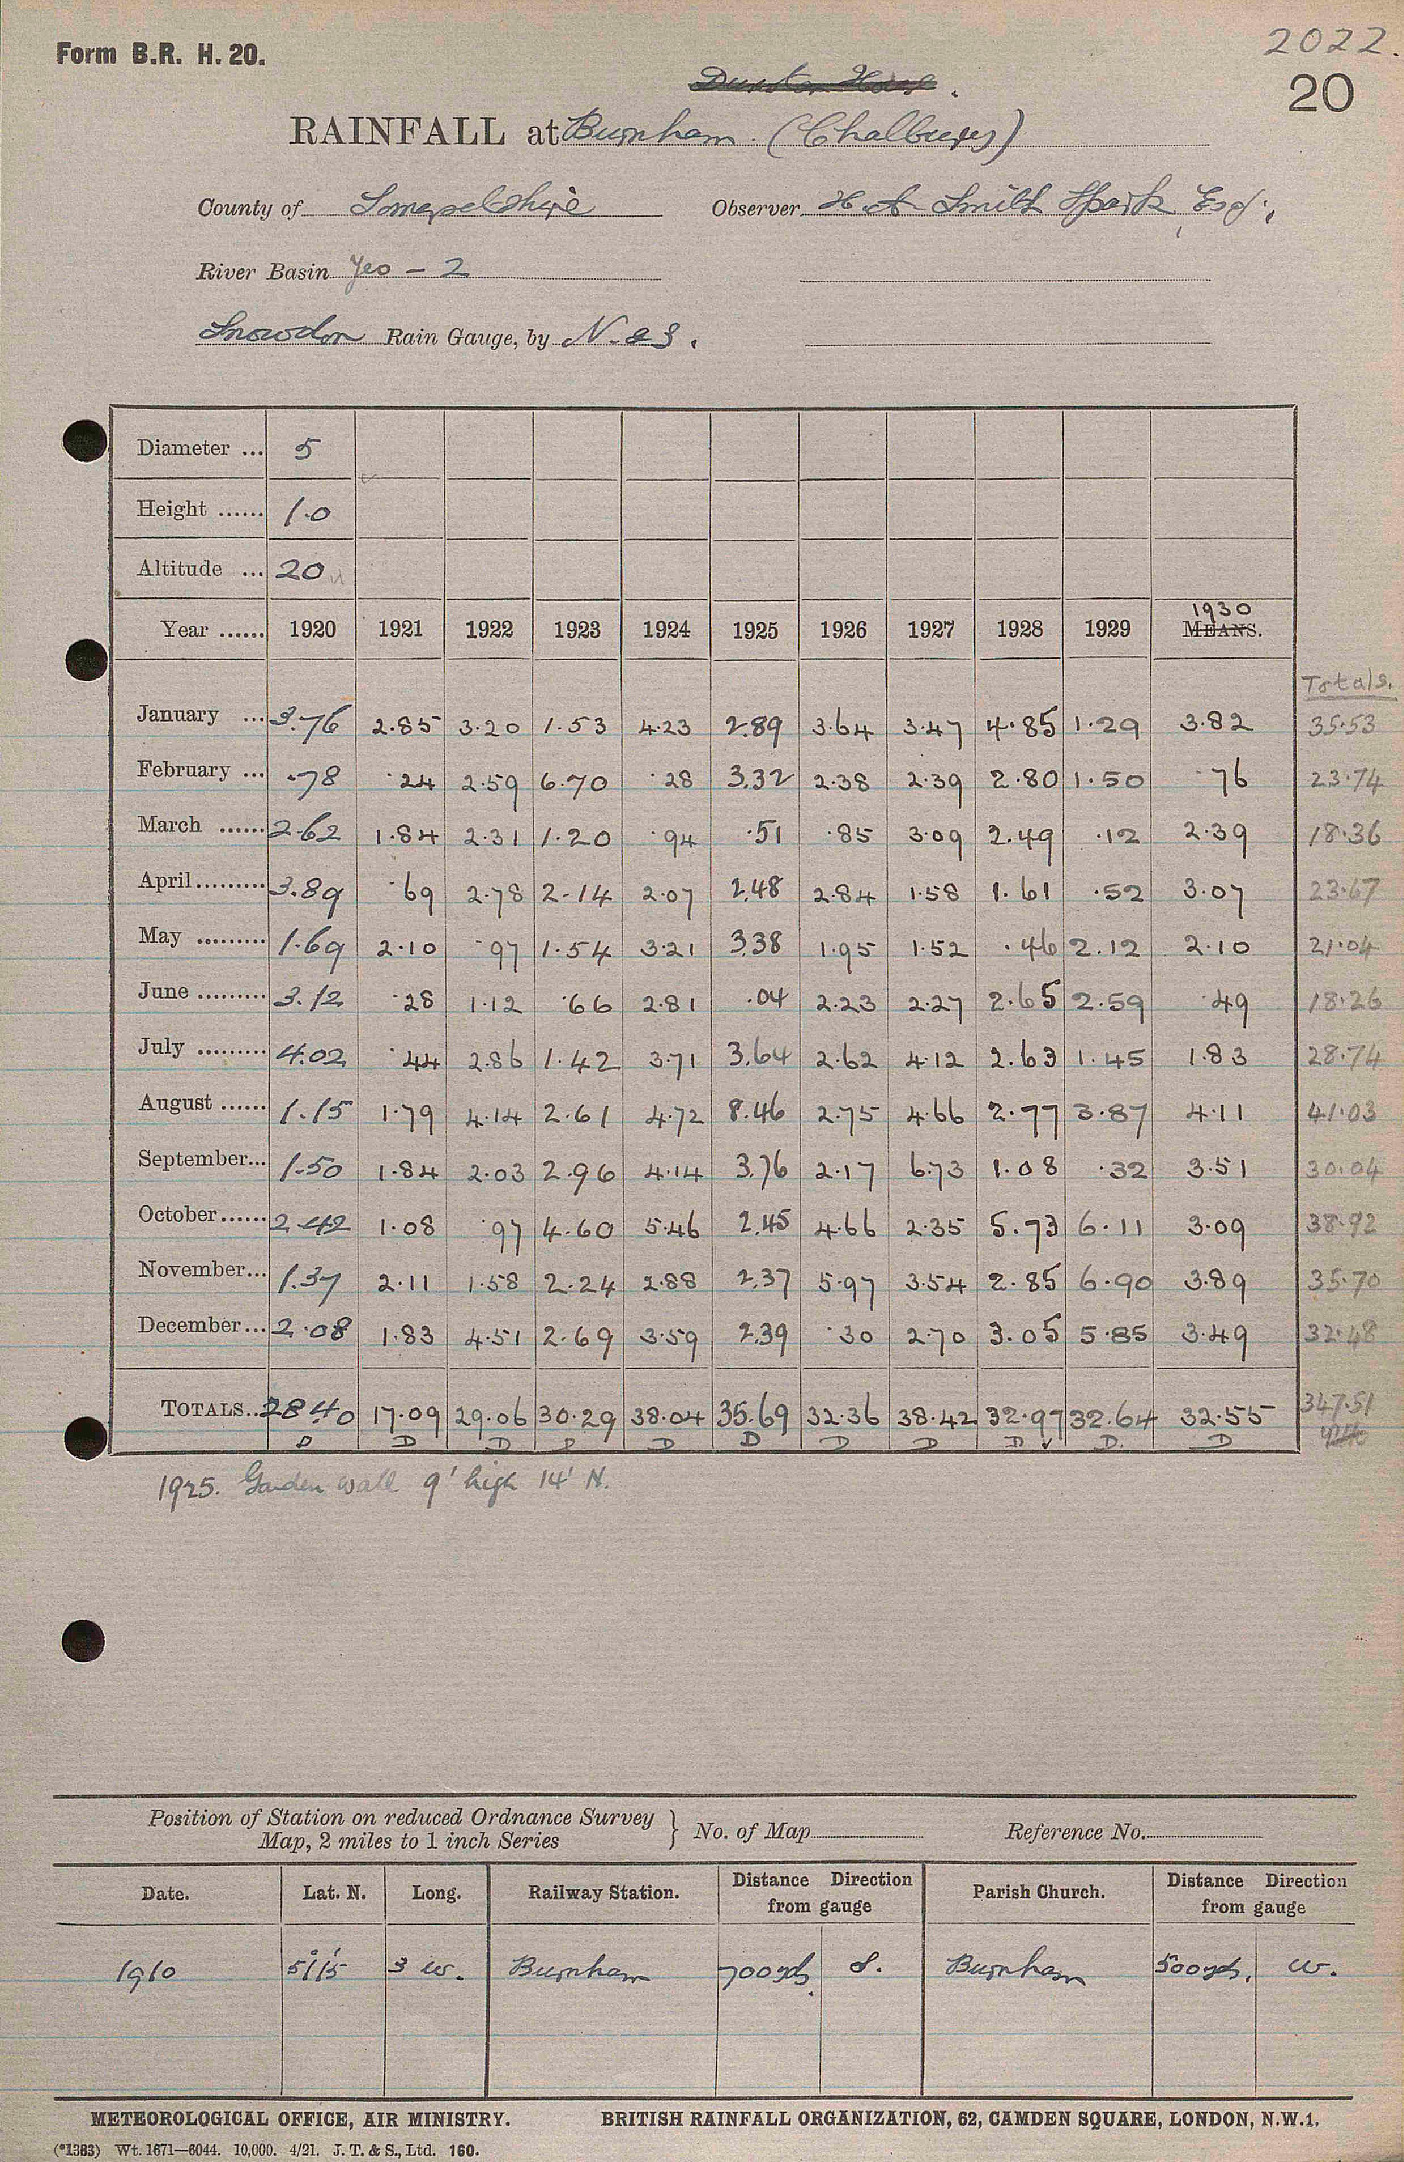 Form B.R. H. 20.
2022.
20
RAINFALL at Burnham (Chalbury)
County of Somersetshire Observer H. A. Smith Spark, Esq.,
River Basin Yeo - 2
Snowdon Rain Gauge, by N. & Z.
Diameter ... 5
Height ...... 1.0
Altitude ... 20
Year ...... 1920 1921 1922 1923 1924 1925 1926 1927 1928 1929 1930 MEANS.
Totals.
January ... 3.76 2.85 3.20 1.53 4.23 2.89 3.64 3.47 4.85 1.29 3.82 35.53
February ... .78 .24 2.59 6.70 .28 3.32 2.38 2.39 2.80 1.50 .76 23.74
March ...... 2.62 1.84 2.31 1.20 .94 .51 .85 3.09 2.49 .12 2.39 18.36
April......... 3.89 .69 2.78 2.14 2.07 2.48 2.84 1.58 1.61 .52 3.07 23.67
May ......... 1.69 2.10 .97 1.54 3.21 3.38 1.95 1.52 .46 2.12 2.10 21.04
June ......... 3.12 .28 1.12 .66 2.81 .04 2.23 2.27 2.65 2.59 .49 18.26
July ......... 4.02 .44 2.86 1.42 3.71 3.64 2.62 4.12 2.63 1.45 1.83 28.74
August ...... 1.15 1.79 4.14 2.61 4.72 8.46 2.75 4.66 2.77 3.87 4.11 41.03
September... 1.50 1.84 2.03 2.96 4.14 3.76 2.17 6.73 1.08 .32 3.51 30.04
October...... 2.42 1.08 .97 4.60 5.46 2.45 4.66 2.35 5.73 6.11 3.09 38.92
November... 1.37 2.11 1.58 2.24 2.88 2.37 5.97 3.54 2.85 6.90 3.89 35.70
December... 2.08 1.83 4.51 2.69 3.59 2.39 .30 2.70 3.05 5.85 3.49 32.48
TOTALS.. 28.40 17.09 29.06 30.29 38.04 35.69 32.36 38.42 32.97 32.64 32.55 347.51
D D D D D D D D D D. D
1925. Garden wall 9' high 14' N.
Position of Station on reduced Ordnance Survey
Map, 2 miles to 1 inch Series
No. of Map
Reference No.
Date. Lat. N. Long. Railway Station. Distance Direction from gauge Parish Church. Distance Direction from gauge
1910 51°15' 3 W. Burnham 700 yds. S. Burnham 500 yds. W.
METEOROLOGICAL OFFICE, AIR MINISTRY. BRITISH RAINFALL ORGANIZATION, 62, CAMDEN SQUARE, LONDON, N.W.1.
(*1383) Wt. 1671—6044. 10,000. 4/21. J. T. & S., Ltd. 160.